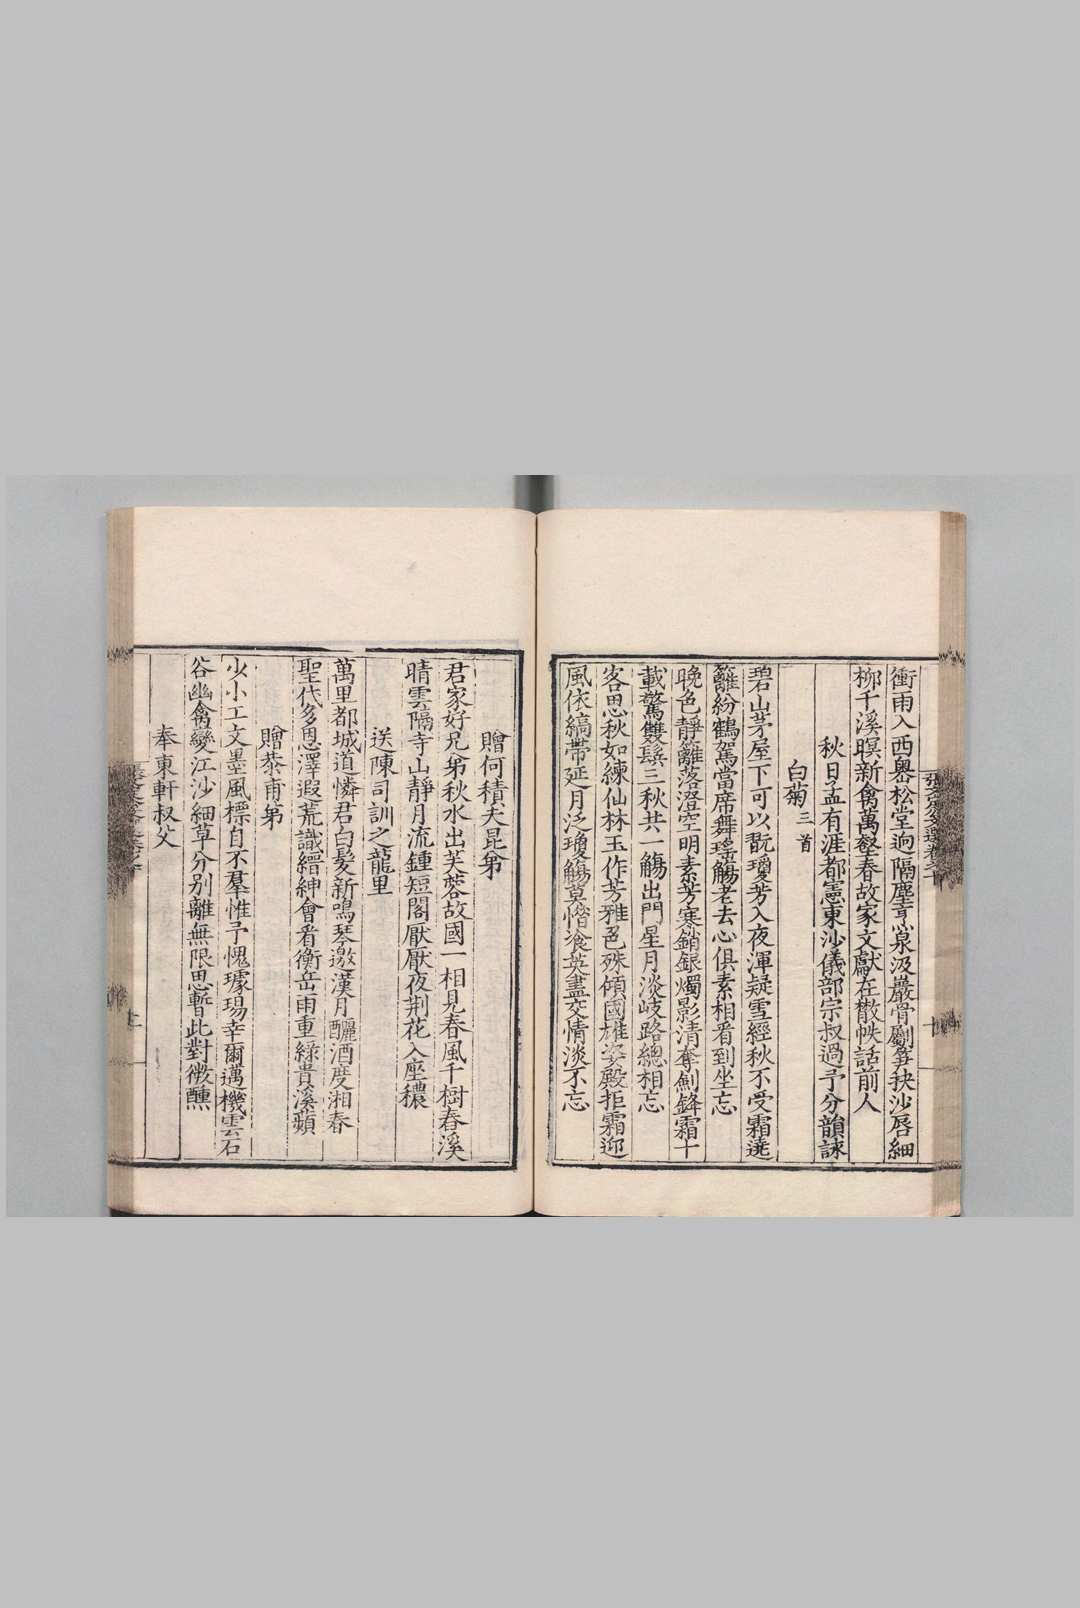 衝雨入西嶴松堂迥隔塵烹泉汲巖骨劚笋抉沙唇細
柳千溪暝新禽萬壑春故家文獻在散帙話前人
秋日孟有涯都憲東沙儀部宗叔過予分韻諫
白菊三首
碧山茅屋下可以翫瓊芳入夜渾疑雪經秋不受霜遶
籬紛鶴駕當席舞瑤觴老去心俱素相看到坐忘
晚色靜籬落澄空明素芳寒銷銀燭影清奪劍鋒霜十
載驚雙鬢三秋共一觴出門星月淡岐路總相忘
客思秋如練仙林玉作芳雅色殊傾國雄姿殿拒霜迎
風依縞帶延月泛瓊觴莫惜飡英盡交情淡不忘
贈何積夫昆弟
君家好兄弟秋水出芙蓉故國一相見春風千樹春溪
晴雲隔寺山靜月流鍾短閣厭厭夜荆花入座穠
送陳司訓之龍里
萬里都城道憐君白髮新鳴琴邀漢月釃酒度湘春
聖代多恩澤遐荒識縉紳會看衡岳雨重綠貴溪蘋
贈恭甫弟
少小工文墨風標自不羣惟予愧璩瑒幸爾邁機雲石
谷幽禽變江沙細草分别離無限思暫此對微醺
奉東軒叔父